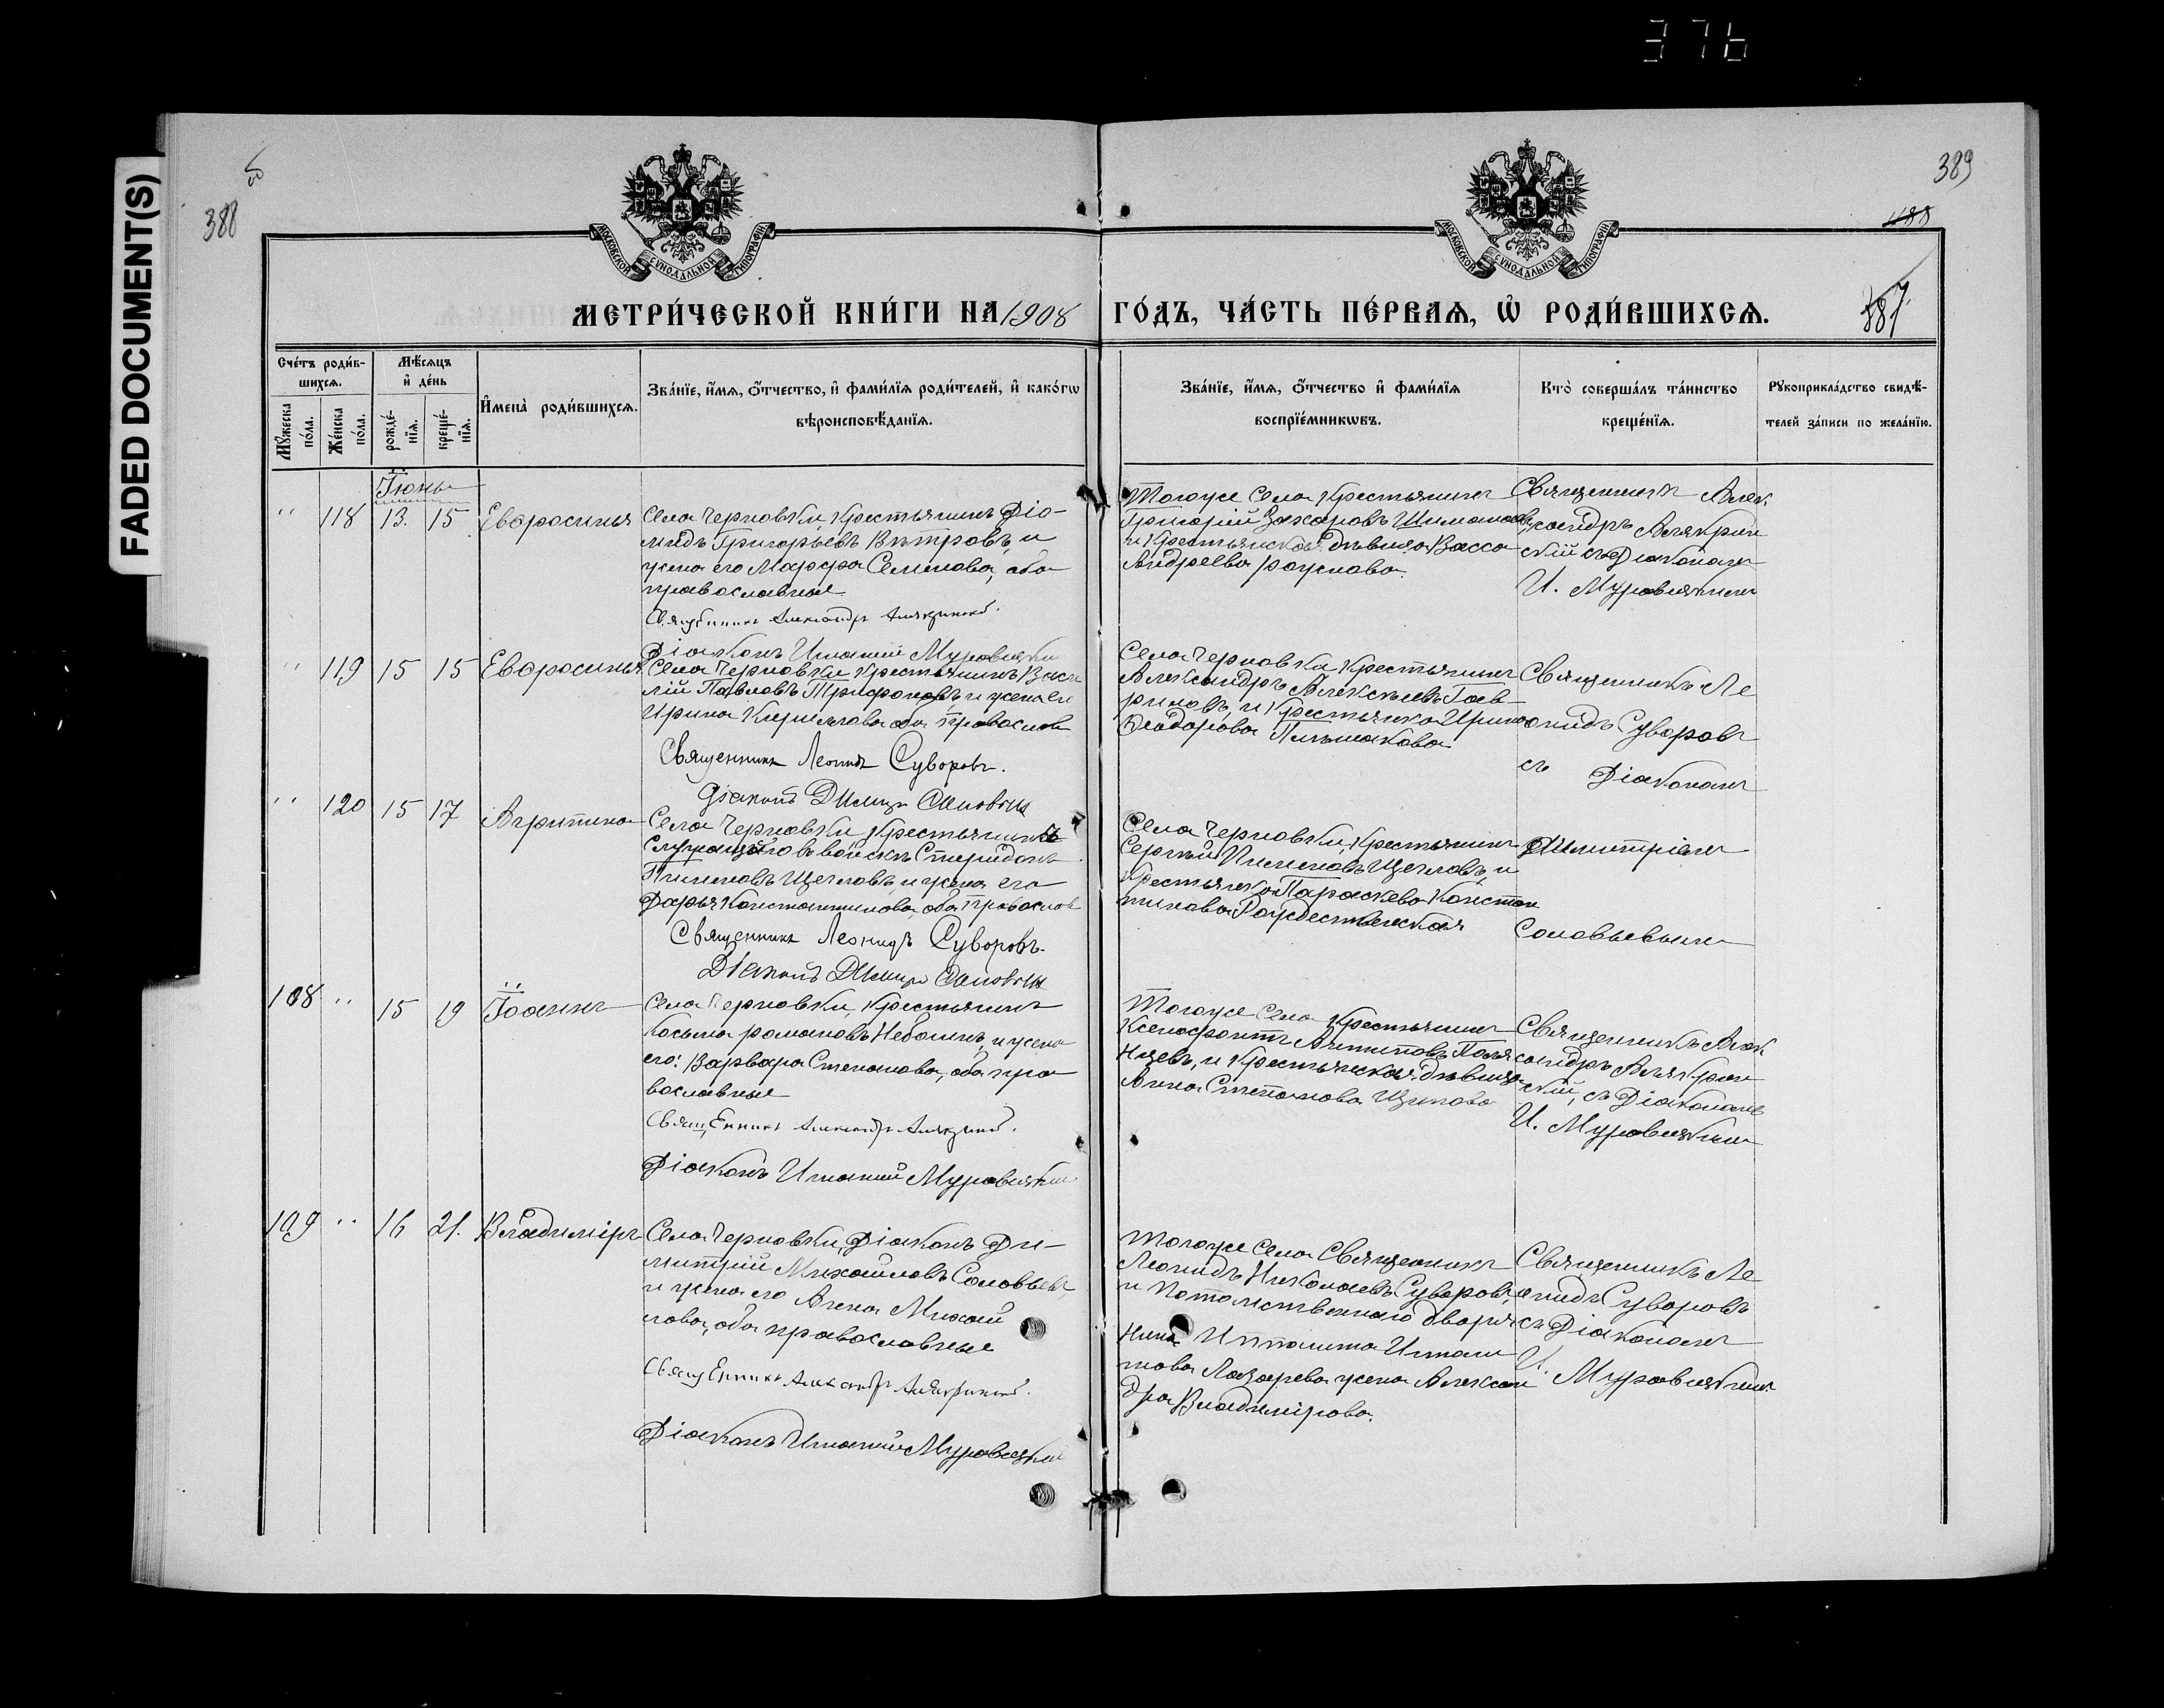 376
FADED DOCUMENT(S)
388
389
488
387
МОСКОВСКОЙ СѴНОДАЛЬНОЙ ТИПОГРАФІИ
МОСКОВСКОЙ СѴНОДАЛЬНОЙ ТИПОГРАФІИ
МЕТРИ́ЧЕСКОЙ КНИ́ГИ НА 1908 ГО́ДЪ, ЧА́СТЬ ПЕ́РВАѦ, Ѡ҆ РОДИ́ВШИХСѦ.
Сче́тъ роди́в-
шихсѧ.
Мꙋ́жеска
по́ла.
Же́нска
по́ла.
Мѣ́сѧцъ
и҆ де́нь
рожде́-
нїѧ.
креще́-
нїѧ.
И҆мена̀ роди́вшихсѧ.
Зва́нїе, и҆́мѧ, ѻ҆́тчество, и҆ фами́лїѧ роди́телей, и҆ како́гѡ
вѣроисповѣ́данїѧ.
Зва́нїе, и҆́мѧ, ѻ҆́тчество и҆ фами́лїѧ
воспрїе́мникѡвъ.
Кто̀ соверша́лъ та́инство
креще́нїѧ.
Рꙋкоприкла́дство свидѣ́-
телей за́писи по жела́нїю.
Іюнь
" 118 13. 15 Евфросинья
Села Черновки, крестьянинъ Діо-
мидъ Григорьевъ Вѣтровъ, и
жена его Марфа Семенова, оба
православные
Священникъ Александръ Алякринскій.
Діаконъ Игнатій Муравицкій
Тогоже Села крестьянинъ
Григорій Захаровъ Шимановъ,
и крестьянская дѣвица Васса
Андреева Рожнова.
Священникъ Алек
сандръ Алякрин
скій съ Діакономъ
И. Муравицкимъ
" 119 15 15 Евфросинья
Села Черновки крестьянинъ Васи
лій Павловъ Трифоновъ и жена его
Ирина Кириллова оба православ
Священникъ Леонидъ Суворовъ.
Діаконъ Димитр Соловьевъ
Села Черновки крестьянинъ
Александръ Алексѣевъ Гав-
риловъ, и крестьянка Ирина
Ѳеодорова
Священникъ Ле
онидъ Суворовъ
съ Діакономъ
" 120 15 17 Агрипина
Села Черновки крестьянинъ
въ войскѣ Спиридонъ
Пименовъ Щегловъ, и жена его
Дарья Константинова оба православ
Священникъ Леонидъ Суворовъ.
Діаконъ Димитр Соловьевъ
Села Черновки, крестьянинъ
Сергѣй Пименовъ Щегловъ, и
крестьянка Параскева Констан
тинова Рождественская
Димитріемъ
Соловьевымъ
108 " 15 19 Іоаннъ
Села Черновки, крестьянинъ
Косьма Романовъ Небогинъ, и жена
его: Варвара Степанова, оба пра
вославные
Священникъ Александръ Алякринскій.
Діаконъ Игнатій Муравицкій
Тогоже Села крестьянинъ
Ксенофонтъ Антиповъ
и крестьянская дѣвица
Анна Степанова
Священникъ Алек
сандръ Алякрин
скій, съ Діакономъ
И. Муравицкимъ
109 " 16 21. Владиміръ
Села Черновки, Діаконъ Ди-
митрій Михайловъ Соловьевъ,
и жена его Анна Михай
лова, оба православные
Священникъ Александръ Алякринскій.
Діаконъ Игнатій Муравицкій
Тогоже Села Священникъ
Леонидъ Николаевъ Суворовъ,
и Потомственнаго дворя
нина Ипполита Иппали
това Лазарева жена Алексан
дра Владимірова.
Священникъ Ле
онидъ Суворовъ
съ Діакономъ
И. Муравицкимъ